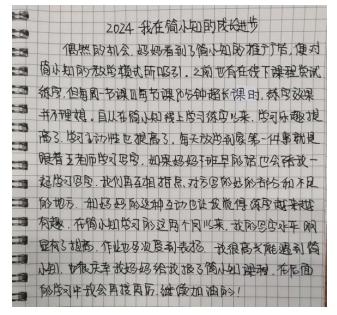 2024 我在简小知的成长进步
偶然的机会,妈妈看到了简小知的推广后,便对
简小知的教学模式所吸引,之前也有在线下课程尝试
练字,但每周一节课且每节课90分钟超长课时,练字效果
并不理想,自从在简小知线上学习练字以来,学习乐趣提
高了,学习主动性也提高了,每天放学到家第一件事就是
跟着王老师学习写字,如果妈妈下班早的话也会陪我一
起学习写字,我们再互相指点对方写的好的部分和不足
的地方,和妈妈的这种互动也让我觉得练字越来越
有趣,在简小知学习的这两个月以来,我的写字水平明
显有了提高,作业也多次受到表扬,我很高兴能遇到简
小知,也很庆幸我妈妈给我报了简小知课程,在后面
的学习中我会再接再厉,继续加油的!